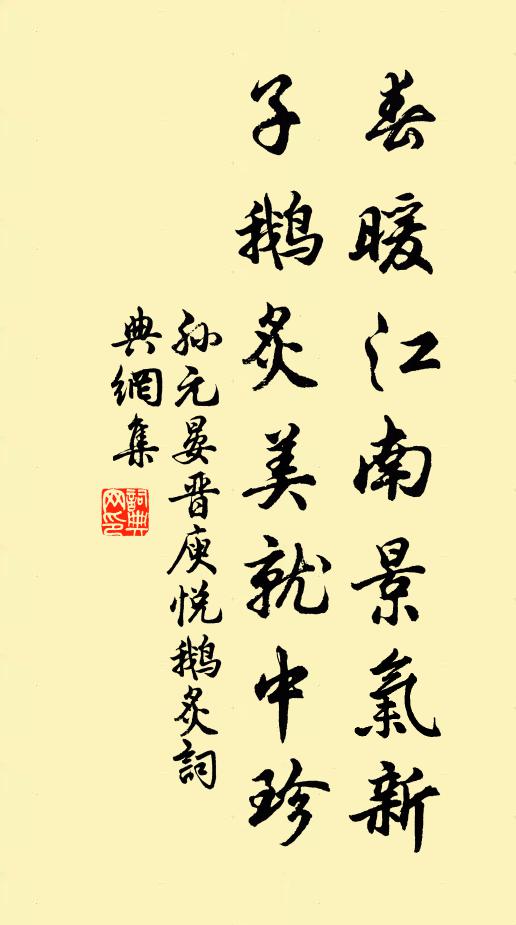 春暖江南景氣新
子鵝炙美就中珍
孫元晏晋庾悦鵝炙詞
典網集
詞典網印